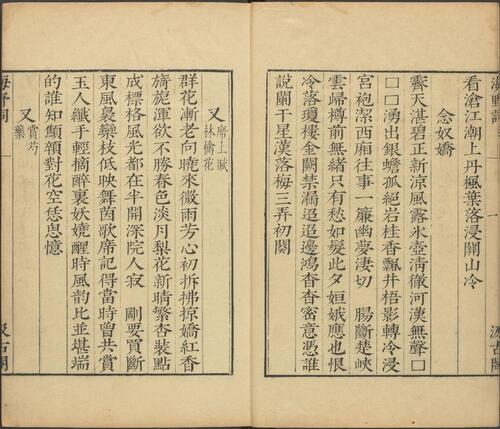 看滄江潮上丹楓葉落浸關山冷
念奴嬌
霽天湛碧正新涼風露氷壺清徹河漢無聲囗
囗囗湧出銀蟾孤絕岩桂香飄井梧影轉冷浸
宮袍潔西廂往事一簾幽夢淒切 腸斷楚峽
雲歸樽前無緒只有愁如髮此夕姮娥應也恨
冷落瓊樓金闕禁漏迢迢邊鴻杳杳密意憑誰
說闌干星漢落梅三弄初闋
又 席上賦林檎花
群花漸老向曉來微雨芳心初拆拂掠嬌紅香
旖旎渾欲不勝春色淡月梨花新晴繁杏裝點
成標格風光都在半開深院人寂 剛要買斷
東風裊欒枝低映舞茵歌席記得當時曾共賞
玉人纖手輕摘醉裏妖嬈醒時風韵比並堪端
的誰知顦顇對花空恁思憶
又 賞芍藥